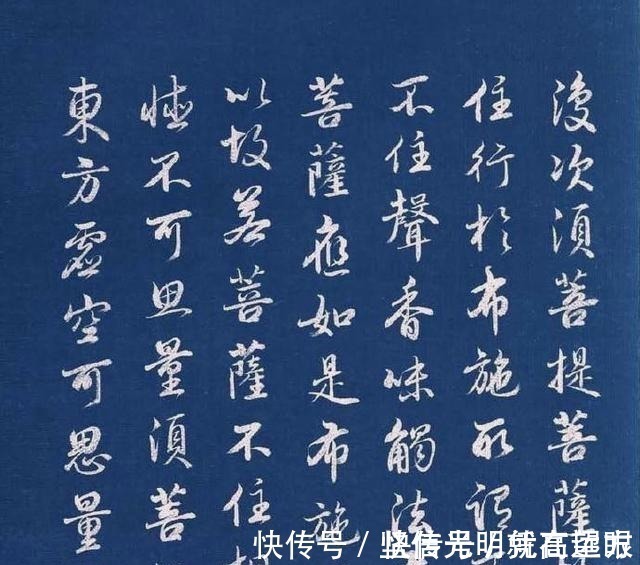 復次須菩提菩薩
住行於布施所謂
不住聲香味觸法
菩薩應如是布施
以故若菩薩不住
德不可思量須菩
東方虛空可思量
快传号／